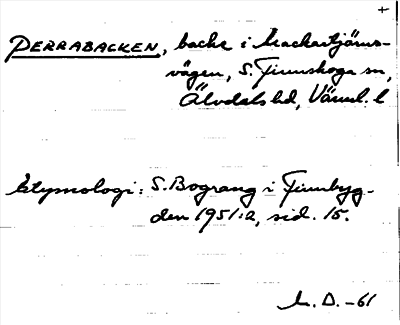 +
PERRABACKEN, backe i Mackartjärns-
vägen, S. Finnskoga sn,
Älvdals hd, Värml. l
Etymologi: S. Bograng i Finnbyg-
den 1951:2, sid. 15.
M. D. -61